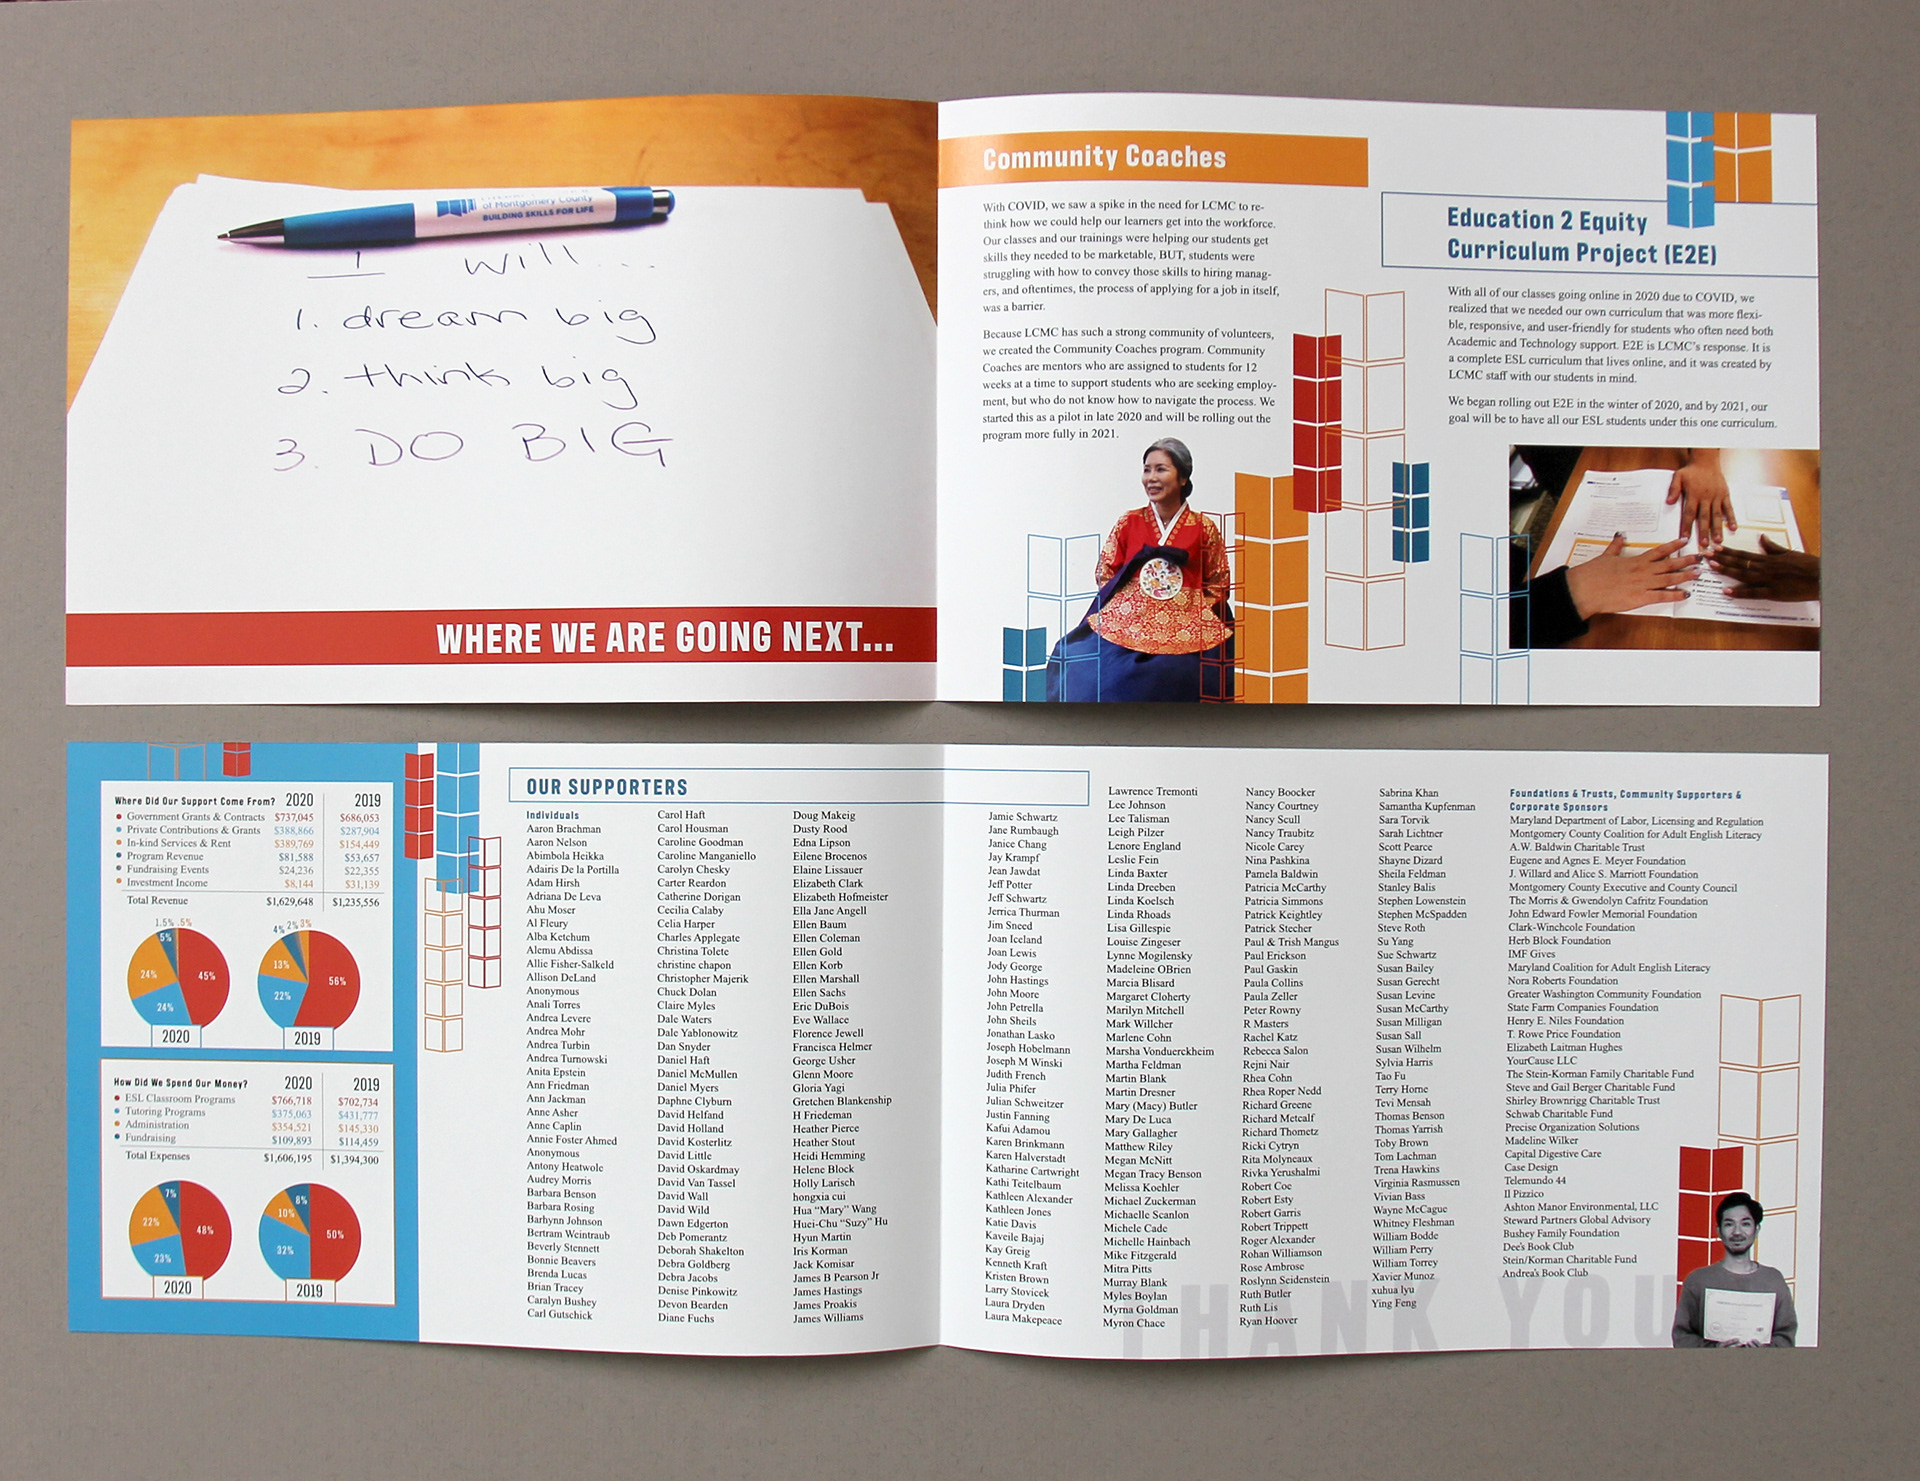 of Montgomery County
BUILDING SKILLS FOR LIFE
I will...
1. dream big
2. think big
3. DO BIG
WHERE WE ARE GOING NEXT...
Community Coaches
With COVID, we saw a spike in the need for LCMC to re-
think how we could help our learners get into the workforce.
Our classes and our trainings were helping our students get
skills they needed to be marketable, BUT, students were
struggling with how to convey those skills to hiring manag-
ers, and oftentimes, the process of applying for a job in itself,
was a barrier.
Because LCMC has such a strong community of volunteers,
we created the Community Coaches program. Community
Coaches are mentors who are assigned to students for 12
weeks at a time to support students who are seeking employ-
ment, but who do not know how to navigate the process. We
started this as a pilot in late 2020 and will be rolling out the
program more fully in 2021.
Education 2 Equity
Curriculum Project (E2E)
With all of our classes going online in 2020 due to COVID, we
realized that we needed our own curriculum that was more flexi-
ble, responsive, and user-friendly for students who often need both
Academic and Technology support. E2E is LCMC's response. It is
a complete ESL curriculum that lives online, and it was created by
LCMC staff with our students in mind.
We began rolling out E2E in the winter of 2020, and by 2021, our
goal will be to have all our ESL students under this one curriculum.
Where Did Our Support Come From? 2020 2019
Government Grants & Contracts $737,045 $686,053
Private Contributions & Grants $388,866 $287,904
In-kind Services & Rent $389,769 $154,449
Program Revenue $81,588 $53,657
Fundraising Events $24,236 $22,355
Investment Income $8,144 $31,139
Total Revenue $1,629,648 $1,235,556
1.5% .5%
5%
24%
45%
24%
2020
4% 2% 3%
13%
56%
22%
2019
How Did We Spend Our Money? 2020 2019
ESL Classroom Programs $766,718 $702,734
Tutoring Programs $375,063 $431,777
Administration $354,521 $145,330
Fundraising $109,893 $114,459
Total Expenses $1,606,195 $1,394,300
7%
22%
48%
23%
2020
8%
10%
50%
32%
2019
OUR SUPPORTERS
Individuals
Aaron Brachman
Aaron Nelson
Abimbola Heikka
Adairis De la Portilla
Adam Hirsh
Adriana De Leva
Ahu Moser
Al Fleury
Alba Ketchum
Alemu Abdissa
Allie Fisher-Salkeld
Allison DeLand
Anonymous
Anali Torres
Andrea Levere
Andrea Mohr
Andrea Turbin
Andrea Turnowski
Anita Epstein
Ann Friedman
Ann Jackman
Anne Asher
Anne Caplin
Annie Foster Ahmed
Anonymous
Antony Heatwole
Audrey Morris
Barbara Benson
Barbara Rosing
Barhynn Johnson
Bertram Weintraub
Beverly Stennett
Bonnie Beavers
Brenda Lucas
Brian Tracey
Caralyn Bushey
Carl Gutschick
Carol Haft
Carol Housman
Caroline Goodman
Caroline Manganiello
Carolyn Chesky
Carter Reardon
Catherine Dorigan
Cecilia Calaby
Celia Harper
Charles Applegate
Christina Tolete
christine chapon
Christopher Majerik
Chuck Dolan
Claire Myles
Dale Waters
Dale Yablonowitz
Dan Snyder
Daniel Haft
Daniel McMullen
Daniel Myers
Daphne Clyburn
David Helfand
David Holland
David Kosterlitz
David Little
David Oskardmay
David Van Tassel
David Wall
David Wild
Dawn Edgerton
Deb Pomerantz
Deborah Shakelton
Debra Goldberg
Debra Jacobs
Denise Pinkowitz
Devon Bearden
Diane Fuchs
Doug Makeig
Dusty Rood
Edna Lipson
Eilene Brocenos
Elaine Lissauer
Elizabeth Clark
Elizabeth Hofmeister
Ella Jane Angell
Ellen Baum
Ellen Coleman
Ellen Gold
Ellen Korb
Ellen Marshall
Ellen Sachs
Eric DuBois
Eve Wallace
Florence Jewell
Francisca Helmer
George Usher
Glenn Moore
Gloria Yagi
Gretchen Blankenship
H Friedeman
Heather Pierce
Heather Stout
Heidi Hemming
Helene Block
Holly Larisch
hongxia cui
Hua “Mary” Wang
Huei-Chu “Suzy” Hu
Hyun Martin
Iris Korman
Jack Komisar
James B Pearson Jr
James Hastings
James Proakis
James Williams
Jamie Schwartz
Jane Rumbaugh
Janice Chang
Jay Krampf
Jean Jawdat
Jeff Potter
Jeff Schwartz
Jerrica Thurman
Jim Sneed
Joan Iceland
Joan Lewis
Jody George
John Hastings
John Moore
John Petrella
John Sheils
Jonathan Lasko
Joseph Hobelmann
Joseph M Winski
Judith French
Julia Phifer
Julian Schweitzer
Justin Fanning
Kafui Adamou
Karen Brinkmann
Karen Halverstadt
Katharine Cartwright
Kathi Teitelbaum
Kathleen Alexander
Kathleen Jones
Katie Davis
Kaveile Bajaj
Kay Greig
Kenneth Kraft
Kristen Brown
Larry Stovicek
Laura Dryden
Laura Makepeace
Lawrence Tremonti
Lee Johnson
Lee Talisman
Leigh Pilzer
Lenore England
Leslie Fein
Linda Baxter
Linda Dreeben
Linda Koelsch
Linda Rhoads
Lisa Gillespie
Louise Zingeser
Lynne Mogilensky
Madeleine OBrien
Marcia Blisard
Margaret Cloherty
Marilyn Mitchell
Mark Willcher
Marlene Cohn
Marsha Vonduerckheim
Martha Feldman
Martin Blank
Martin Dresner
Mary (Macy) Butler
Mary De Luca
Mary Gallagher
Matthew Riley
Megan McNitt
Megan Tracy Benson
Melissa Koehler
Michael Zuckerman
Michaelle Scanlon
Michele Cade
Michelle Hainbach
Mike Fitzgerald
Mitra Pitts
Murray Blank
Myles Boylan
Myrna Goldman
Myron Chace
Nancy Boocker
Nancy Courtney
Nancy Scull
Nancy Traubitz
Nicole Carey
Nina Pashkina
Pamela Baldwin
Patricia McCarthy
Patricia Simmons
Patrick Keightley
Patrick Stecher
Paul & Trish Mangus
Paul Erickson
Paul Gaskin
Paula Collins
Paula Zeller
Peter Rowny
R Masters
Rachel Katz
Rebecca Salon
Rejni Nair
Rhea Cohn
Rhea Roper Nedd
Richard Greene
Richard Metcalf
Richard Thometz
Ricki Cytryn
Rita Molyneaux
Rivka Yerushalmi
Robert Coe
Robert Esty
Robert Garris
Robert Trippett
Roger Alexander
Rohan Williamson
Rose Ambrose
Roslynn Seidenstein
Ruth Butler
Ruth Lis
Ryan Hoover
Sabrina Khan
Samantha Kupfenman
Sara Torvik
Sarah Lichtner
Scott Pearce
Shayne Dizard
Sheila Feldman
Stanley Balis
Stephen Lowenstein
Stephen McSpadden
Steve Roth
Su Yang
Sue Schwartz
Susan Bailey
Susan Gerecht
Susan Levine
Susan McCarthy
Susan Milligan
Susan Sall
Susan Wilhelm
Sylvia Harris
Tao Fu
Terry Horne
Tevi Mensah
Thomas Benson
Thomas Yarrish
Toby Brown
Tom Lachman
Trena Hawkins
Virginia Rasmussen
Vivian Bass
Wayne McCague
Whitney Fleshman
William Bodde
William Perry
William Torrey
Xavier Munoz
xuhua lyu
Ying Feng
Foundations & Trusts, Community Supporters &
Corporate Sponsors
Maryland Department of Labor, Licensing and Regulation
Montgomery County Coalition for Adult English Literacy
A.W. Baldwin Charitable Trust
Eugene and Agnes E. Meyer Foundation
J. Willard and Alice S. Marriott Foundation
Montgomery County Executive and County Council
The Morris & Gwendolyn Cafritz Foundation
John Edward Fowler Memorial Foundation
Clark-Winchcole Foundation
Herb Block Foundation
IMF Gives
Maryland Coalition for Adult English Literacy
Nora Roberts Foundation
Greater Washington Community Foundation
State Farm Companies Foundation
Henry E. Niles Foundation
T. Rowe Price Foundation
Elizabeth Laitman Hughes
YourCause LLC
The Stein-Korman Family Charitable Fund
Steve and Gail Berger Charitable Fund
Shirley Brownrigg Charitable Trust
Schwab Charitable Fund
Precise Organization Solutions
Madeline Wilker
Capital Digestive Care
Case Design
Telemundo 44
Il Pizzico
Ashton Manor Environmental, LLC
Steward Partners Global Advisory
Bushey Family Foundation
Dee's Book Club
Stein/Korman Charitable Fund
Andrea's Book Club
THANK YOU